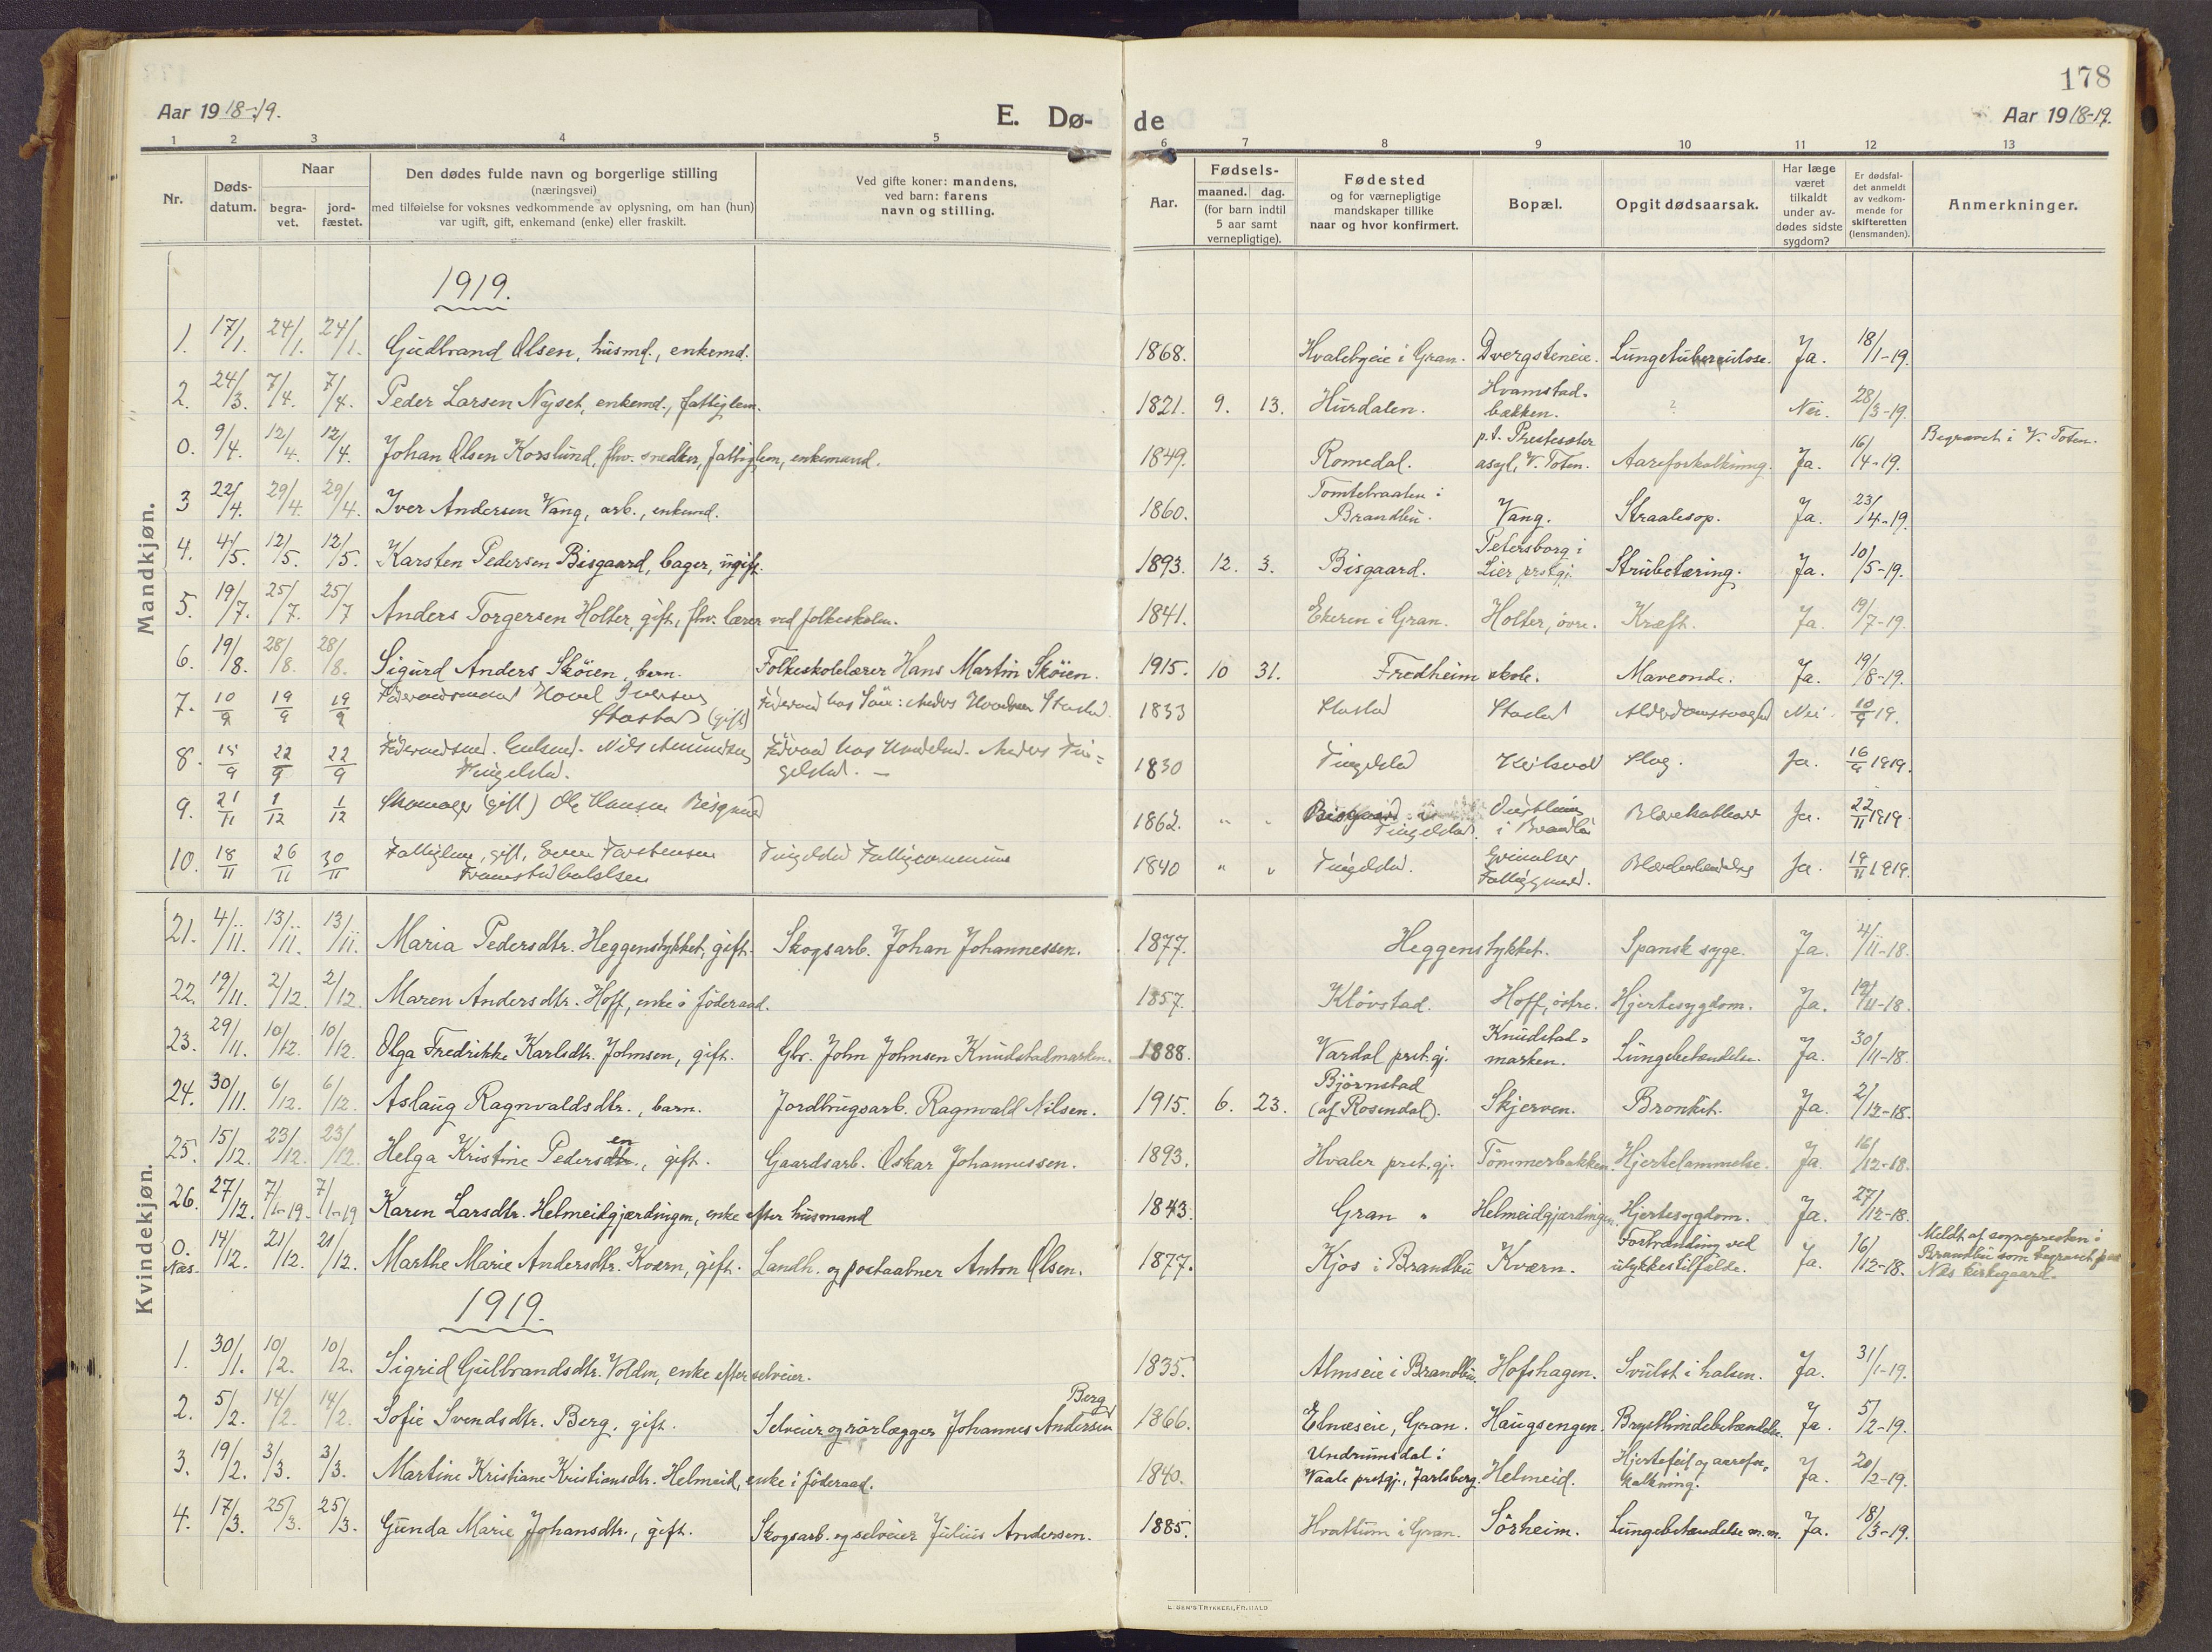 178
Aar 1918-19. E. Dø- de Aar 1918-19.
1 2 3 4 5 6 7 8 9 10 11 12 13
Nr. Døds-datum. Naar begra-vet. jord-fæstet. Den dødes fulde navn og borgerlige stilling (næringsvei) med tilføielse for voksnes vedkommende av oplysning, om han (hun) var ugift, gift, enkemand (enke) eller fraskilt. Ved gifte koner: mandens, ved barn: farens navn og stilling. Aar. Fødsels- maaned. dag. (for barn indtil 5 aar samt vernepligtige). Fødested og for værnepligtige mandskaper tillike naar og hvor konfirmert. Bopæl. Opgit dødsaarsak. Har læge været tilkaldt under av-dødes sidste sygdom? Er dødsfal-det anmeldt av vedkom-mende for skifteretten (lensmanden). Anmerkninger.
Mandkjøn.
1919.
1. 17/1. 24/1. 24/1. Gudbrand Olsen, husmd., enkemd. 1868. Hvalebyeie i Gran. Dvergsteneie. Lungetuberculose. Ja. 18/1-19.
2. 24/3. 7/4. 7/4. Peder Larsen Nyset, enkemd., fattiglem. 1821. 9. 13. Hurdalen. Hvamstad-bakken. ? Nei. 28/3-19.
0. 9/4. 12/4. 12/4. Johan Olsen Korslund, fhv. snedker, fattiglem, enkemand. 1849. Romedal. p.t. Prestesæter asyl, V. Toten. Aareforkalkning. Ja. 16/4-19. Begravet i V. Toten.
3 22/4. 29/4. 29/4. Iver Andersen Vang, arb., enkemd. 1860. Tomtebraaten i Brandbu. Vang. Straalesop. Ja. 23/4-19.
4. 4/5. 12/5. 12/5. Karsten Pedersen Bisgaard, bager, ugift. 1893. 12. 3. Bisgaard. Petersborg i Lier prstgj. Strubetæring. Ja. 10/5-19.
5. 19/7. 25/7. 25/7 Anders Torgersen Holter, gift, fhv. lærer ved folkeskolen. 1841. Ekeren i Gran. Holter, övre. Kræft. Ja. 19/7-19.
6. 19/8. 28/8. 28/8. Sigurd Anders Sköien, barn. Folkeskolelærer Hans Martin Sköien. 1915. 10 31. Fredheim skole. Maveonde. Ja. 19/8-19.
7. 10/9 19/9 19/9 Föderaadsmand Hovel Iversen Stastad (gift) Föderaad hos Sön: Anders Hovelsen Stastad. 1833 Stastad Stastad Alderdomssvaghed Nei. 10/9 19.
8. 15/9 22/9 22/9 Föderaadsmd. Enkemd. Nils Amundsen Tingelstad. Föderaad hos Anders Tin=gelstad. — 1830 Tingelstad Slag. Ja. 16/9 1919.
9. 21/11 1/12 1/12 Skomager (gift) Ole Hansen Bisgaard 1862. " " Bisgaard Tingelstad. i Brandbu Blærekatharr Ja. 22/11 1919.
10. 18/11 26/11 30/11 Fattiglem, gift, Even Torstensen Tingelstad Fattigcommune 1840 " " Tingelstad. Fattiggaard. Ja. 19/11 1919.
Kvindekjøn.
21. 4/11. 13/11. 13/11. Maria Pedersdtr. Heggenstykket, gift. Skogsarb. Johan Johannessen. 1877. Heggenstykket. Spansk syge. Ja. 4/11-18.
22. 19/11. 2/12. 2/12. Maren Andersdtr. Hoff, enke i föderaad. 1857. Klövstad. Hoff, östre. Hjertesygdom. Ja. 19/11-18.
23. 29/11. 10/12. 10/12. Olga Fredrikke Karlsdtr. Johnsen, gift. Gbr. John Johnsen Knudstadmarken. 1888. Vardal prst.gj. Knudstad=marken. Lungebetændelse. Ja. 30/11-18.
24. 30/11. 6/12. 6/12. Aslaug Ragnvaldsdtr., barn. Jordbrugsarb. Ragnvald Nilsen. 1915. 6. 23. Björnstad (af Rosendal). Skjerven. Bronkit. Ja. 2/12-18.
25. 15/12. 23/12. 23/12. Helga Kristine Pedersdtr.en, gift. Gaardsarb. Oskar Johannessen. 1893. Hvaler prst.gj. Tömmerbakken. Hjertelammelse. Ja. 16/12-18.
26. 27/12. 7/1-19. 7/1-19 Karen Larsdtr. Helmeidgjærdingen, enke efter husmand 1843. Gran " Helmeidgjærdingen. Hjertesygdom. Ja. 27/12-18.
0. Næs. 14/12. 21/12. 21/12. Marthe Marie Andersdtr. Kværn, gift. Landh. og postaabner Anton Olsen. 1877. Kjos i Brandbu Kværn. Forbrænding ved ulykkestilfælde. Ja. 16/12-18. Meldt af sognepresten i Brandbu som begravet paa Næs kirkegaard.
1919.
1. 30/1. 10/2. 10/2. Sigrid Gulbrandsdtr. Volden, enke efter selveier. 1835. Almseie i Brandbu. Hofshagen. Svulst i halsen. Ja. 31/1-19.
2. 5/2. 14/2. 14/2. Sofie Svendsdtr. Berg, gift. Selveier og rörlægger Johannes Andersen Berg 1866. Elnæseie, Gran. Haugsengen. Brysthindebetændelse. Ja. 5/2-19.
3. 19/2. 3/3. 3/3. Martine Kristiane Kristiansdtr. Helmeid, enke i föderaad. 1840. Undrumsdal i Vaale prstgj., Jarlsberg. Helmeid. Hjertefeil og aarefor-kalkning. Ja. 20/2-19.
4. 17/3. 25/3. 25/3. Gunda Marie Johansdtr., gift. Skogsarb. og selveier Julius Andersen. 1885. Hvattum i Gran. Sörheim. Lungebetændelse m.m. Ja. 18/3-19.